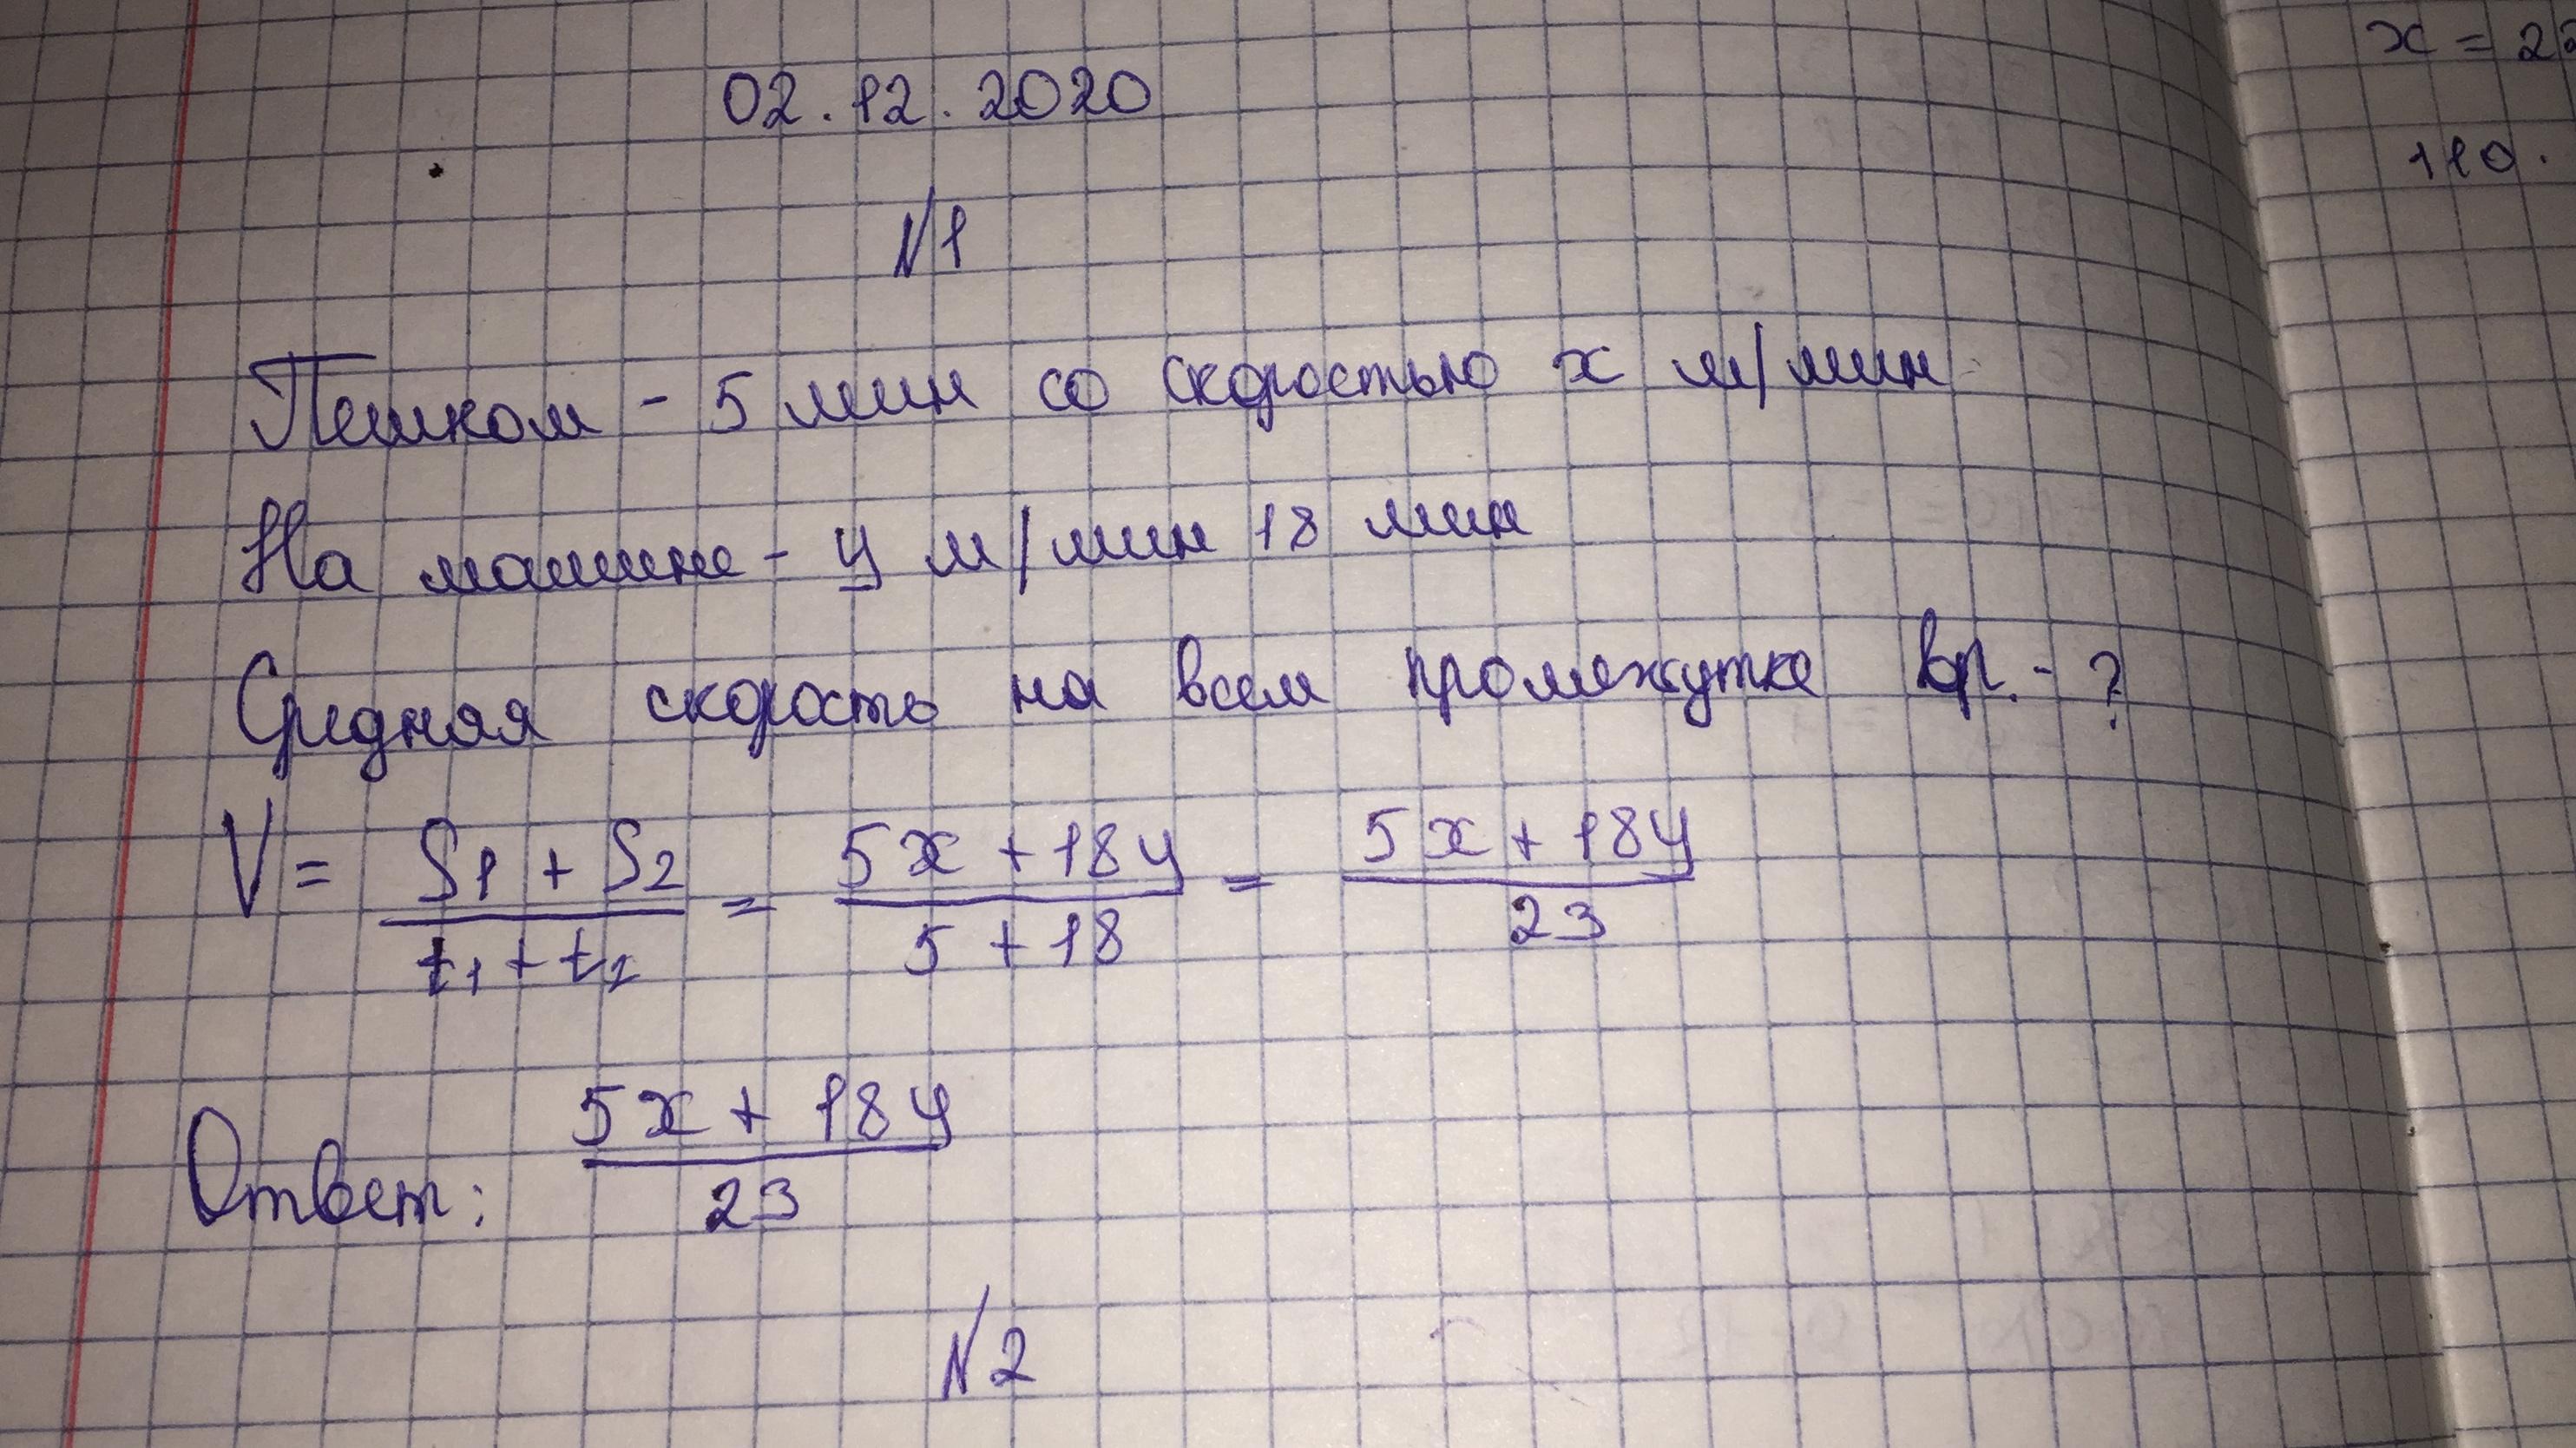 02.12.2020
№1
Пешком - 5 мин со скоростью x м/мин
На машине - y м/мин 18 мин
Средняя скорость на всем промежутке вр. - ?
V = (S1 + S2)/(t1 + t2) = (5x + 18y)/(5 + 18) = (5x + 18y)/23
Ответ: (5x + 18y)/23
№2
x = 2
110.